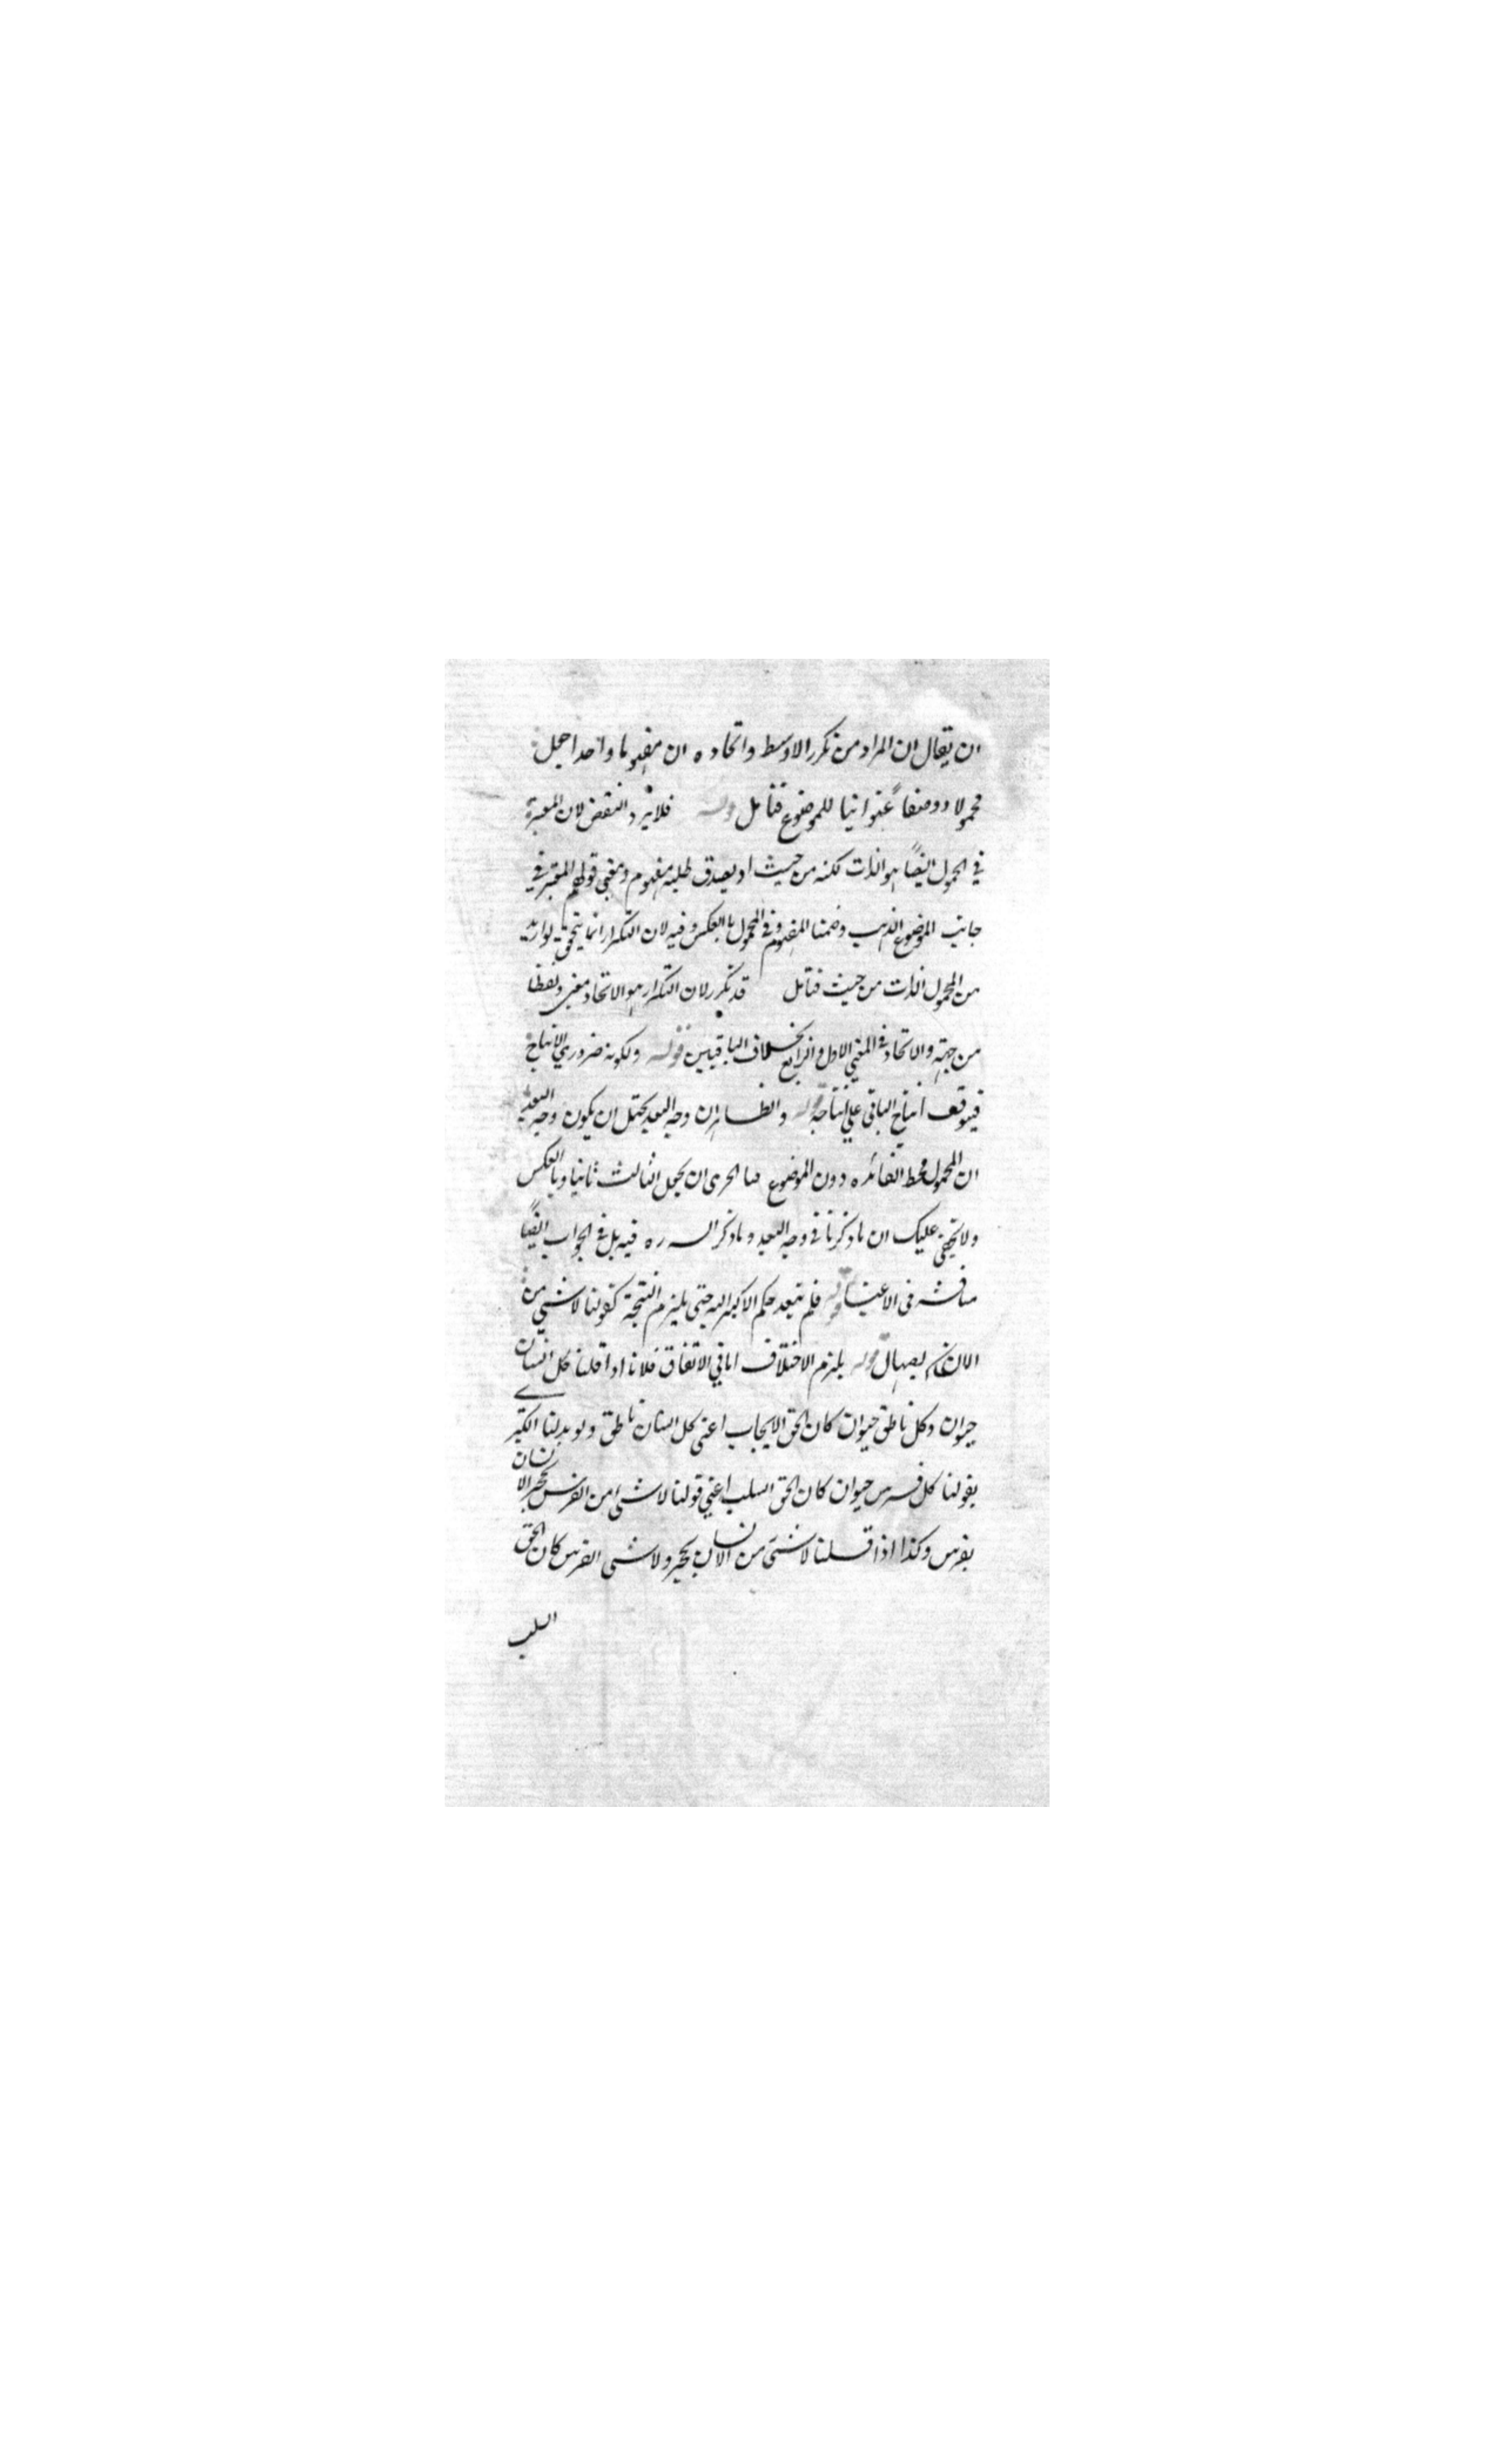 ان يقال ان المراد من تكرر الاوسط واتحاده ان مفهوما واحدا جعل
محمولا ووصفا عنوانيا للموضوع فتأمل قوله فلا يرد النقض لان المعتبر
في المحمول ايضا هو الذات لكنه من حيث يصدق عليه مفهوم ومعنى قولهم المعتبر في
جانب الموضوع الذات وضمنا المفهوم وفي المحمول بالعكس وفيه لان التكرار انما يتحقق
من المحمول الذات من حيث فتأمل قد تكرر لان التكرار هو الاتحاد معنى ولفظا
من جهته والاتحاد في المعنى الاول والرابع بخلاف الباقيين قوله ولكونه ضروري الانتاج
فيتوقف انتاج الباقي على انتاجه قوله والظاهر ان وجه البعد يحتمل ان يكون وجه البعد
ان المحمول محط الفائده دون الموضوع الحرى ان يجعل الثالث ثانيا وبالعكس
ولا يخفى عليك ان ما ذكرنا في وجه البعد وما ذكر السره فيه بل في الجواب ايضا
في الاعين قوله فلم يتعد حكم الاكبر اليه حتى يلزم النتيجة كقولنا لا شيء من
الانسان بصهال قوله يلزم الاختلاف اما في الاتفاق فلانا اذا قلنا كل انسان
حيوان وكل ناطق حيوان كان الحق الايجاب اعنى كل انسان ناطق ولو بدلنا الكبرى
بقولنا كل فرس حيوان كان الحق السلب اعني قولنا لا شيء من الانسان
بفرس وكذا اذا قلنا لا شيء من الانسان بحجر ولا شي الفرس كان الحق
السلب